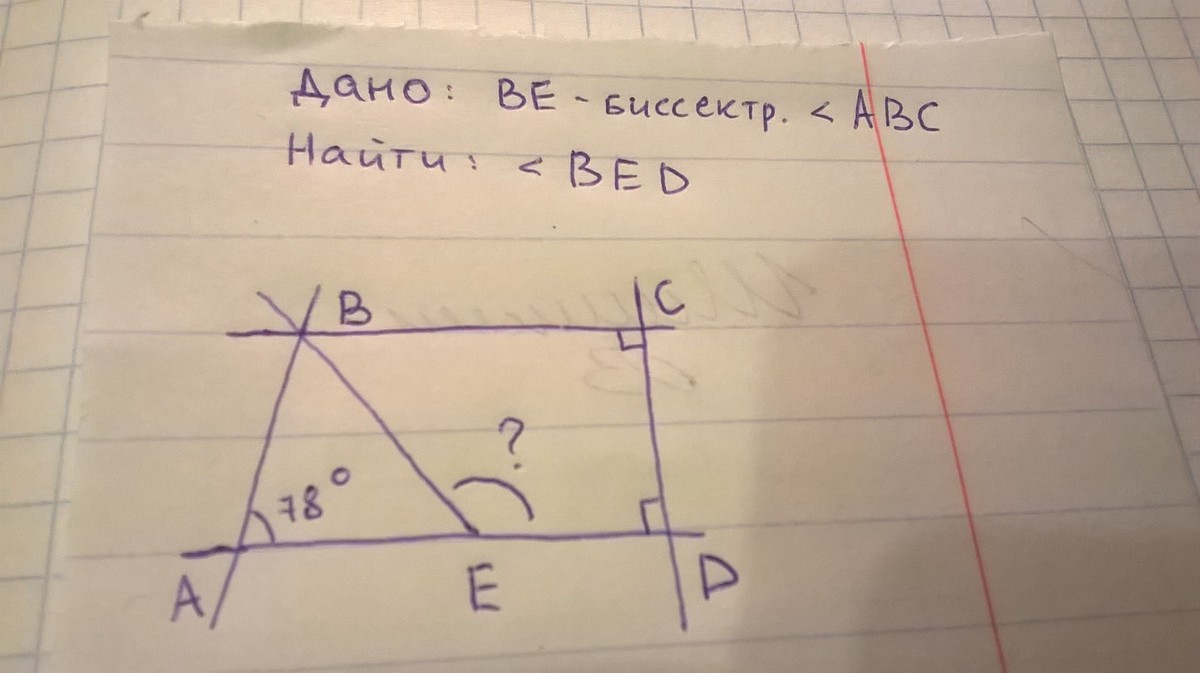 Дано: BE - биссектр. < ABC
Найти: < BED
B
C
?
78°
A
E
D